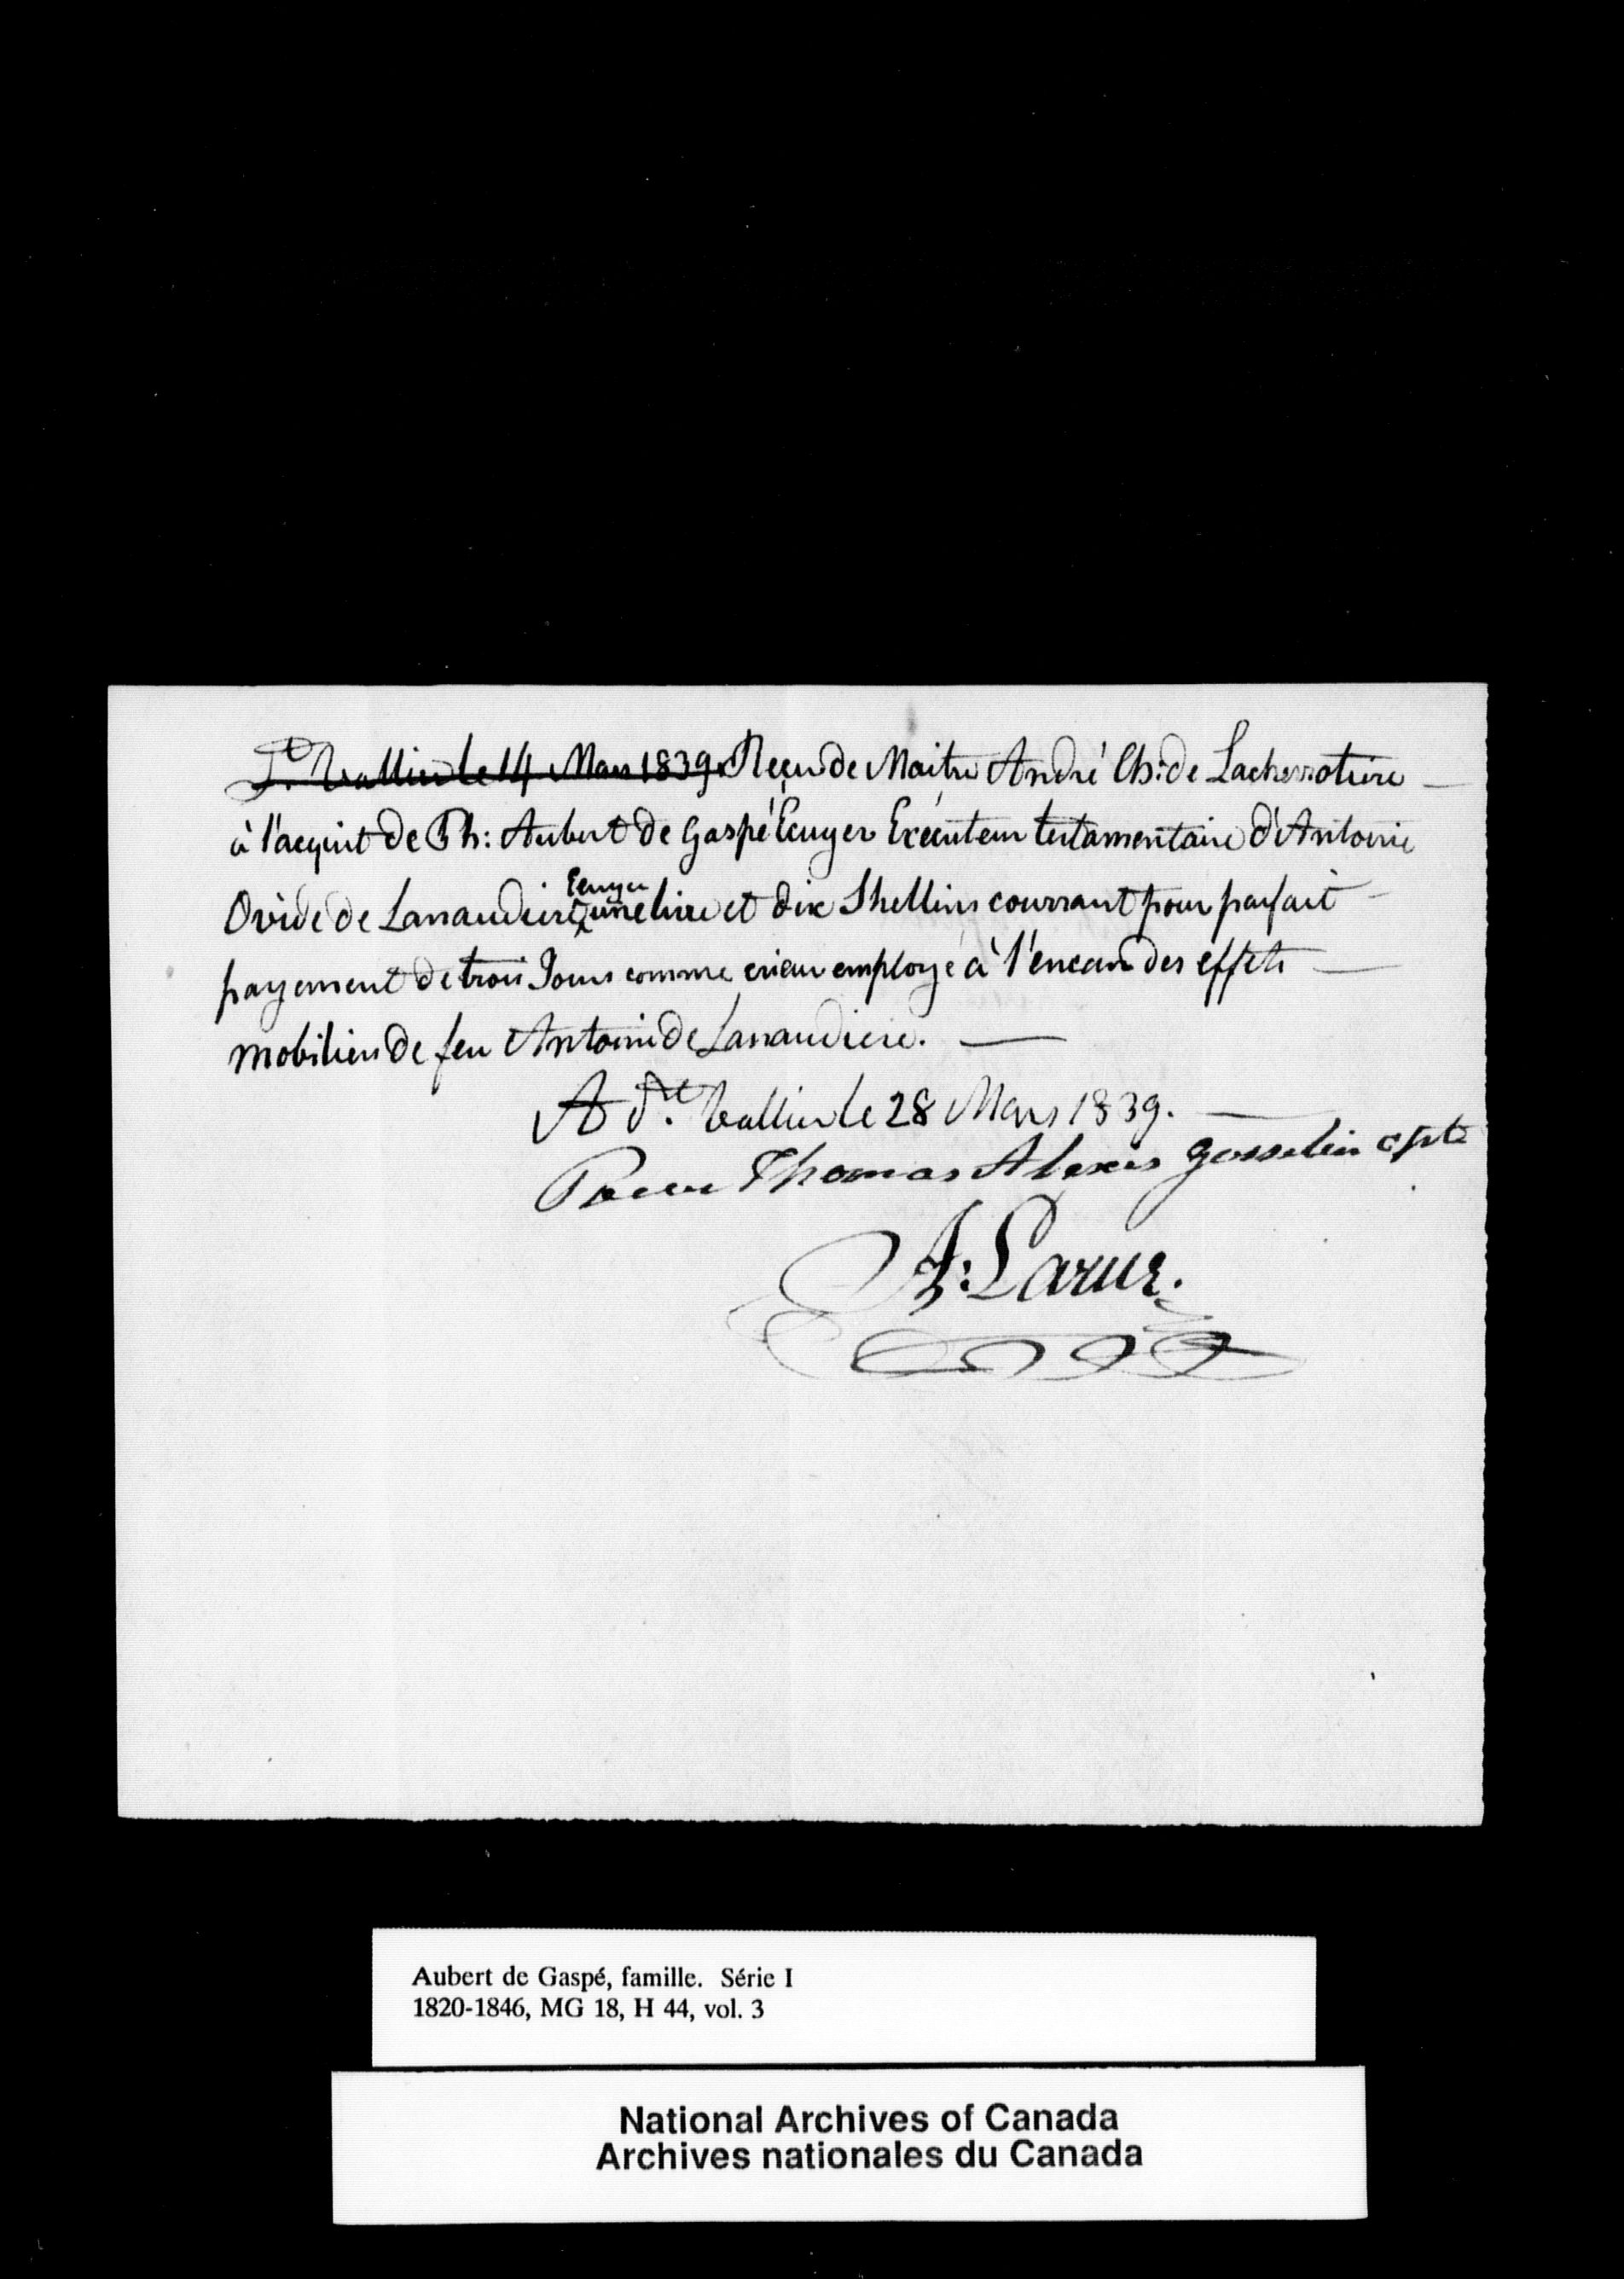 St. Vallier le 14 Mars 1839. Reçu de Maitre André Ch: de Lachevrotiere —
à l'acquit de Ph: Aubert de Gaspé Ecuyer Exécuteur testamentaire d'Antoine
Ecuyer
Ovide de Lanaudiere une livre et dix Shellins courrant pour parfait —
payement de trois Jours comme crieur employé à l'encan des effets —
mobiliers de feu Antoine de Lanaudiere. —
A St. Vallier le 28 Mars 1839. —
Pour Thomas Alexis Gosselin
A: Larue.
Aubert de Gaspé, famille. Série I
1820-1846, MG 18, H 44, vol. 3
National Archives of Canada
Archives nationales du Canada